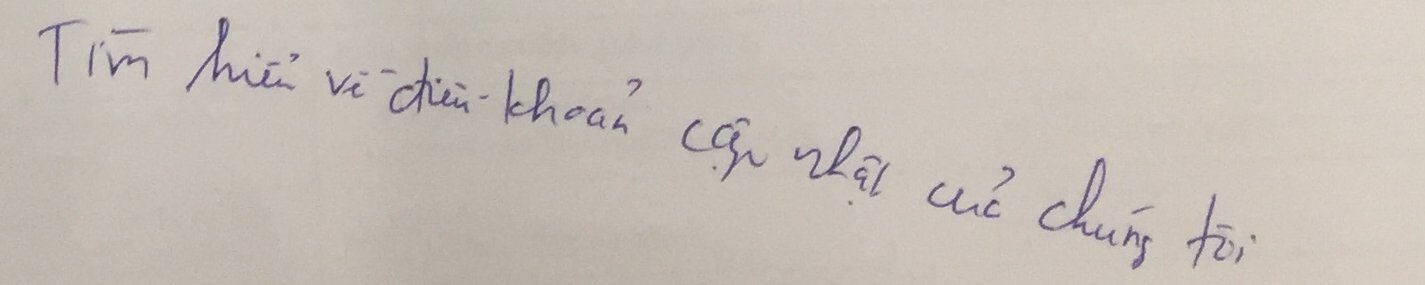 Tìm hiểu về điều khoản cập nhật của chúng tôi